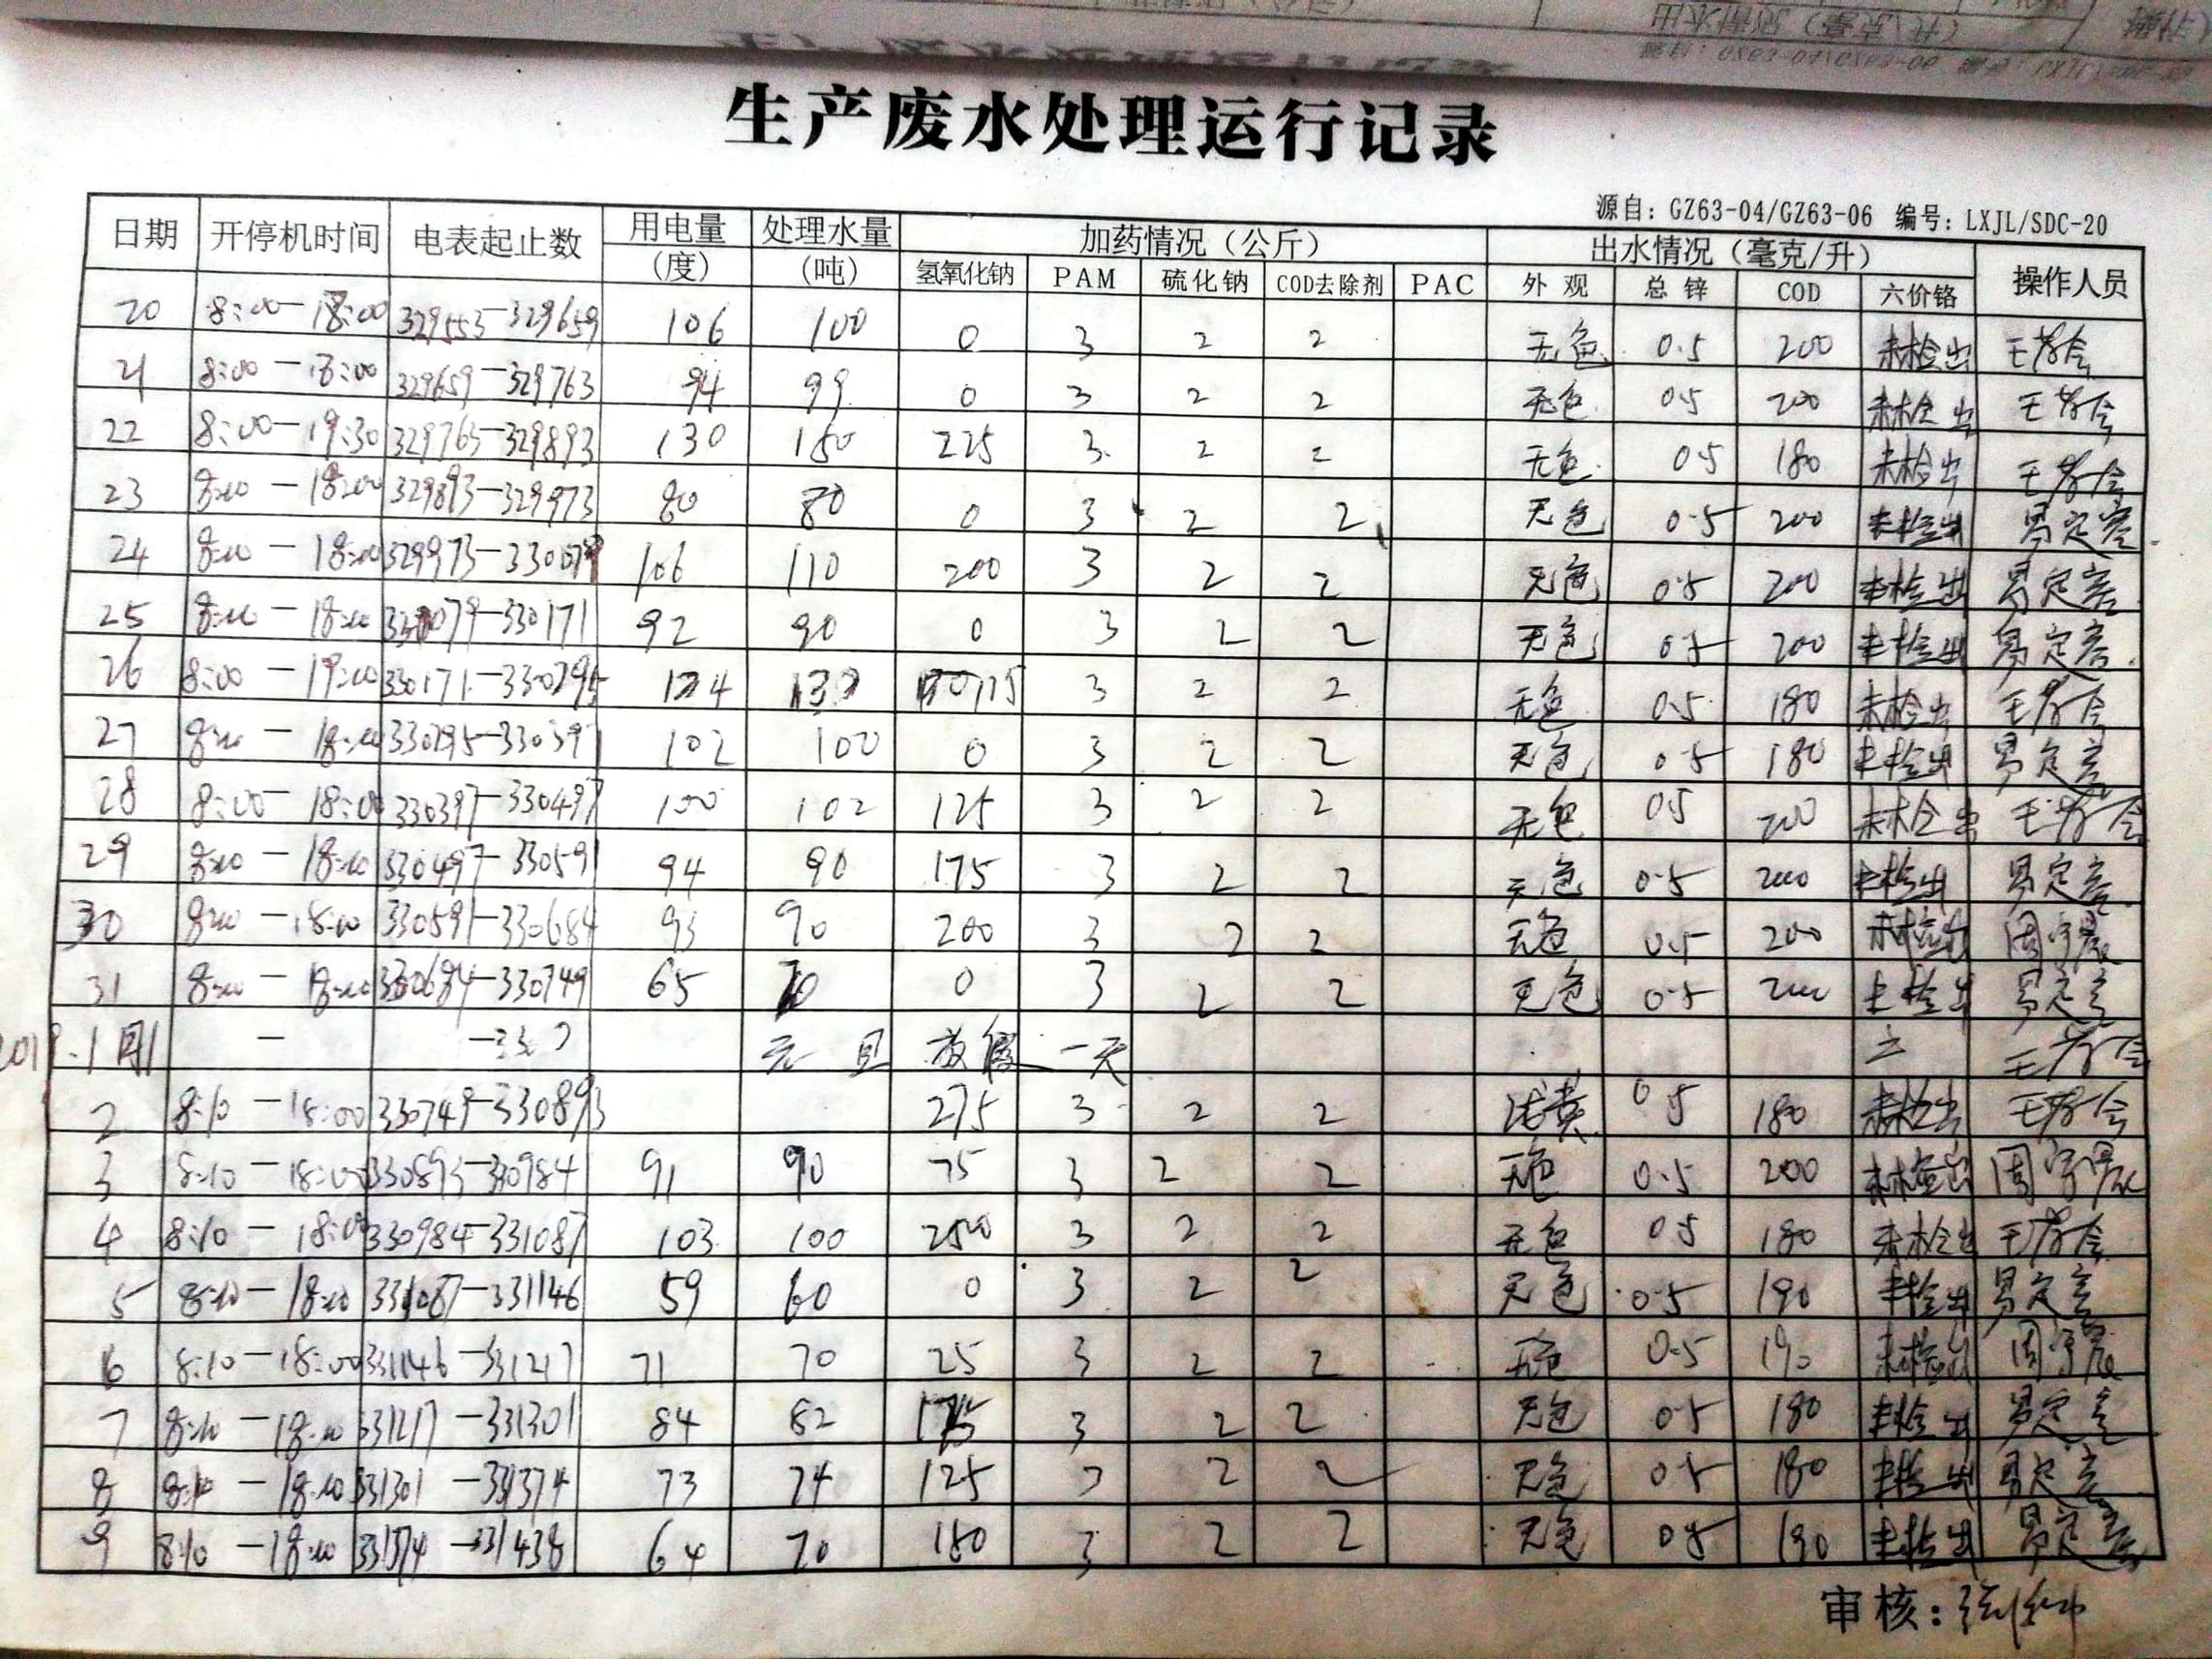 生产废水处理运行记录
源自: GZ63-04/GZ63-06 编号: LXJL/SDC-20
日期 开停机时间 电表起止数 用电量(度) 处理水量(吨) 加药情况(公斤) 出水情况(毫克/升) 操作人员
氢氧化钠 PAM 硫化钠 COD去除剂 PAC 外观 总锌 COD 六价铬
20 8:00-18:00 329553-329659 106 100 0 3 2 2 无色 0.5 200 未检出
21 8:00-18:00 329659-329763 94 99 0 3 2 2 无色 0.5 200 未检出
22 8:00-19:30 329763-329893 130 150 225 3 2 2 无色 0.5 180 未检出
23 8:00-18:00 329893-329973 80 80 0 3 2 2 无色 0.5 200 未检出
24 8:00-18:00 329973-330079 106 110 200 3 2 2 无色 0.5 200 未检出
25 8:00-18:00 330079-330171 92 90 0 3 2 2 无色 0.5 200 未检出
26 8:00-19:00 330171-330295 124 3 2 2 无色 0.5 180 未检出
27 8:00-18:00 330295-330397 102 100 0 3 2 2 无色 0.5 180 未检出
28 8:00-18:00 330397-330497 100 102 125 3 2 2 无色 0.5 200 未检出
29 8:00-18:00 330497-330591 94 90 175 3 2 2 无色 0.5 200 未检出
30 8:00-18:00 330591-330684 93 90 200 3 2 2 无色 0.5 200 未检出
31 8:00-18:00 330684-330749 65 70 0 3 2 2 无色 0.5 200 未检出
2019.1月1 - 元旦放假一天
2 8:10-18:00 330749-330893 275 3 2 2 浅黄 0.5 180 未检出
3 8:10-18:00 330893-330984 91 90 75 3 2 2 无色 0.5 200 未检出
4 8:10-18:00 330984-331087 103 100 250 3 2 2 无色 0.5 180 未检出
5 8:10-18:00 331087-331146 59 60 0 3 2 2 无色 0.5 190 未检出
6 8:10-18:00 331146-331217 71 70 25 3 2 2 无色 0.5 190 未检出
7 8:10-18:00 331217-331301 84 82 175 3 2 2 无色 0.5 180 未检出
8 8:10-18:00 331301-331374 73 74 125 3 2 2 无色 0.5 180 未检出
9 8:10-18:00 331374-331438 64 70 150 3 2 2 无色 0.5 190 未检出
审核: